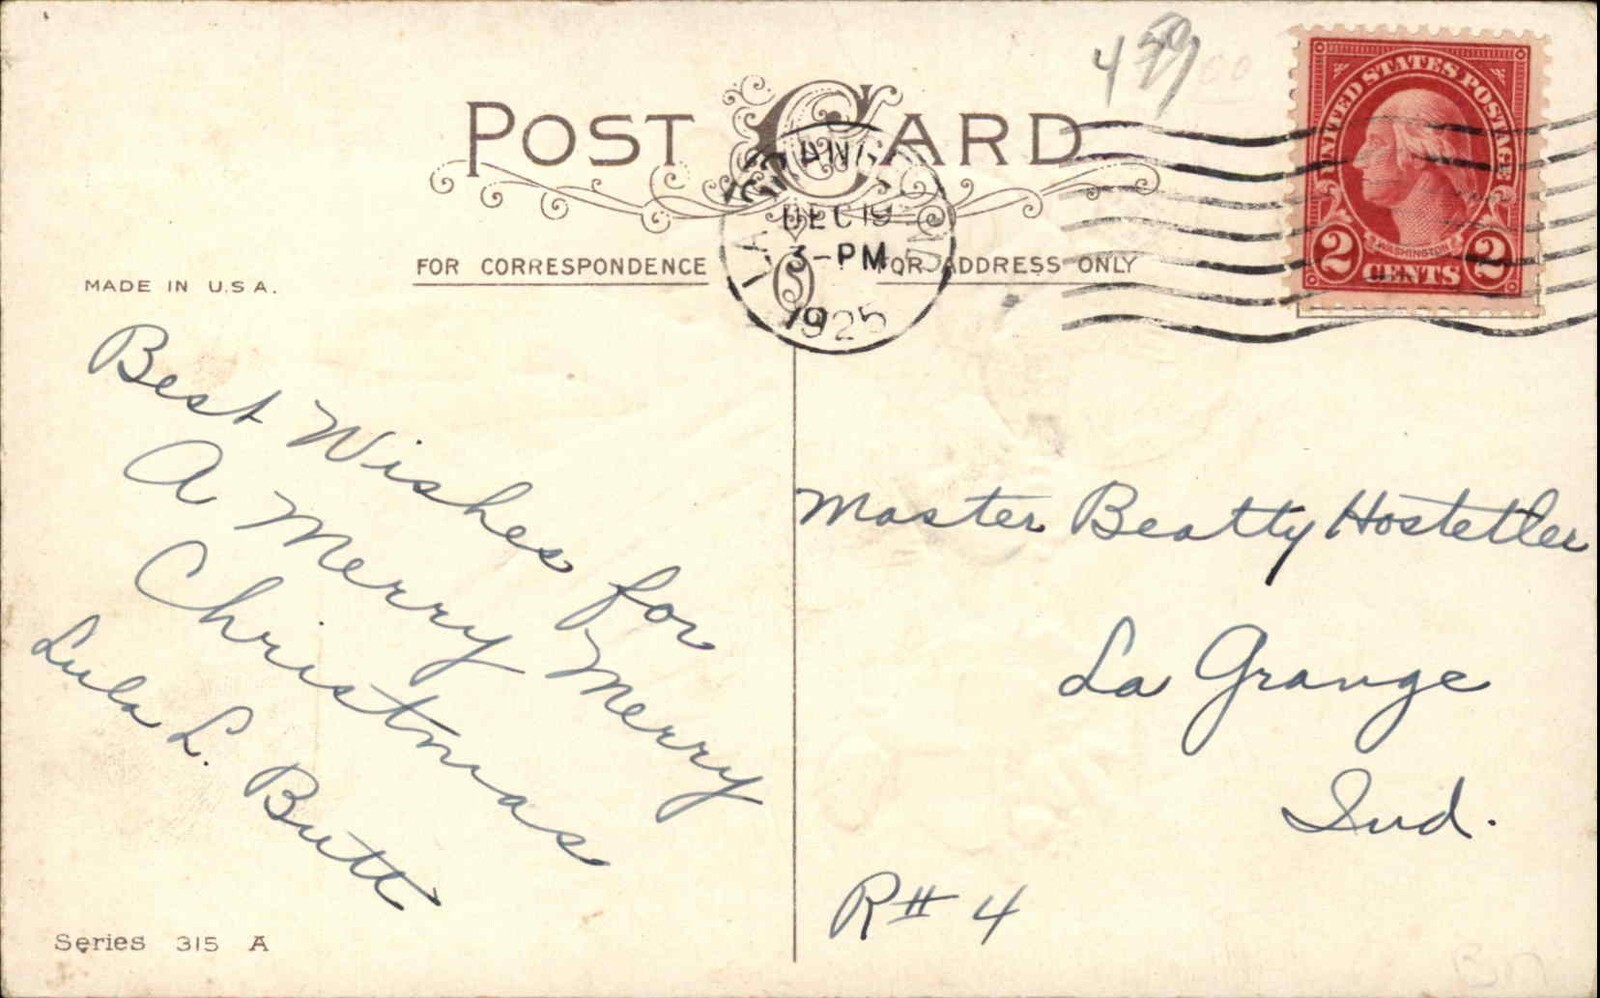 POST CARD
459
UNITED STATES POSTAGE
WASHINGTON
2 CENTS 2
LAGRANGE IND
DEC 19
3-PM
1925
FOR CORRESPONDENCE
FOR ADDRESS ONLY
MADE IN U.S.A.
Best Wishes for
A Merry Merry
Christmas
Lula L. Butt
Master Beatty Hostetler
La Grange
Ind.
R# 4
Series 315 A